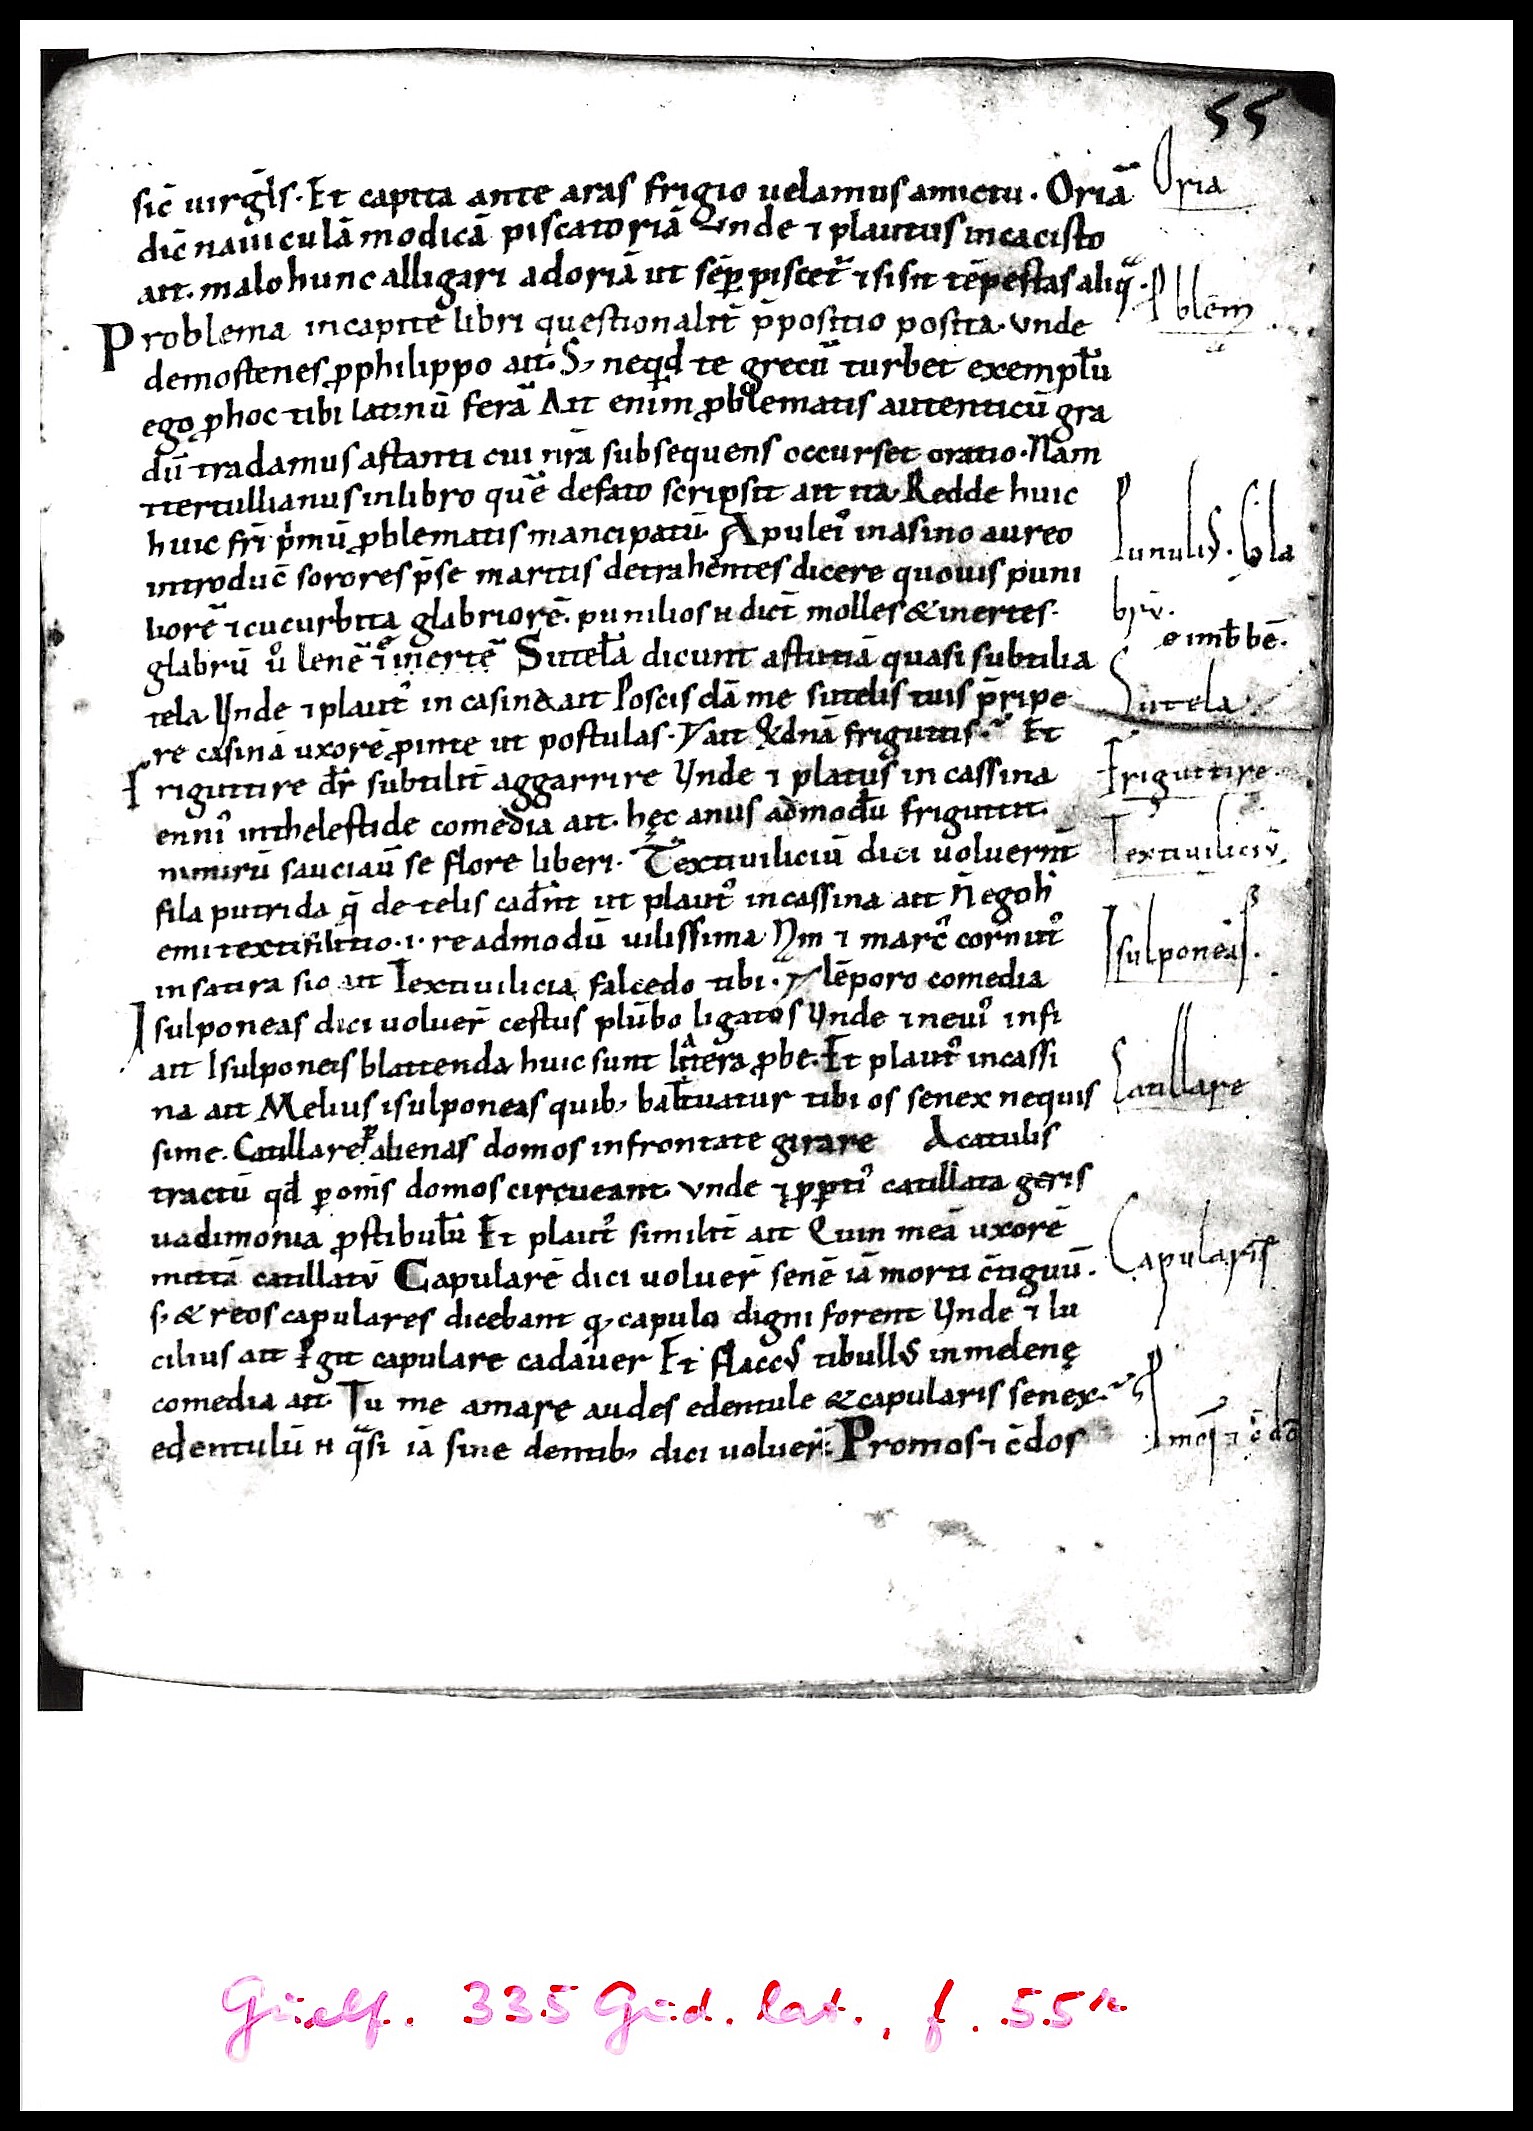 55
sic̄ uirgl̄s. Et captta ante aras frigio uelamus amictu. Oriā
Oria
dic̄ nauiculā modicā piscatoriā Vnde ⁊ plautus in cacisto
ait. malo hunc alligari ad oriā ut sēp piscet̄ ⁊ si sit tēpestas aliq̄.
Pblem̄
Problema in capite libri questionalit̄ p̄positio posita. vnde
demostenes ꝓ philippo ait. S; neqd te grecū turbet exempl̄u
ego ꝓ hoc tibi latinū ferā Ait enim ꝓblematis autenticū gra
dū tradamus astanti cui nr̄a subsequens occurset oratio. Nam
ttertullianus in libro quē de fato scripsit ait ita Redde huic
huic fr̄i pͥmū ꝓblematis mancipatū. Apuleiꝰ in asino aureo
Punuliꝰ. Gla
introduc̄ sorores p̄se martiis detrahentes dicere quouis puni
briū.
liorē ⁊ cucurbita glabriorē. punilios n̄ dict̄ molles & inertes.
e imb̄ bē.
glabrū ů lenē ⁊ inertē Sutel̄a dicunt astutiā quasi subtilia
Sutela.
tela Vnde ⁊ plautꝰ in casina ait Poscis dā me sutelis tuis p̄ripe
re casinā uxorē ꝓinte ut postulas. ait Qd nā friguttis. Et
Friguttire.
friguttire dr̄ subtilit̄ aggarrire Vnde ⁊ platus in cassina
enniꝰ in thelestide comedia ait. hęc anus admod̄u friguttit.
Textiuiliciū
nimirū sauciaū se flore liberi. Textiuiliciū dici uoluerīnt
fila putrida q̄ de telis cadn̄t ut plautꝰ in cassina ait N̄ ego h̄
Isulponeas.
emi textifilitio .i. re admodū uilissima Nm ⁊ marcꝰ cornutꝰ
in satira sic ait Textiuilicia falcedo tibi. lēporo comedia
Isulponeas dici uoluer̄ cestus plūbo ligatos Vnde ⁊ neuiꝰ in fi
ait Isulponeis blattenda huic sunt lͣtera ꝓbe. Et plautꝰ in cassi
Catillare
na ait Melius isulponeas quib; bat̄uatur tibi os senex nequis
sime. Catillare ē alienas domos in frontate girare A catulis
tractū qd̄ ꝑ om̄s domos circueant. vnde ⁊ ꝓꝑtiꝰ catillata geris
uadimonia ꝓstibul̄u Et plautꝰ similit̄ ait Quin meā uxorē
Capularis
mittā catillatū Capularē dici uoluer̄ senē iā morti c̄tiguū.
s; & reos capulares dicebant q; capulo digni forent Vnde ⁊ lu
cilius ait Pͥgit capulare cadauer Et flaccꝰ tibullꝰ in melenę
comedia ait. Tu me amare audes edentule & capularis senex.
edentulū n̄ qͣsi iā sine dentib; dici uoluer̄. Promos ⁊ c̄dos
Pmos ⁊ c̄do
Guelf. 335 Gud. lat., f. 55r